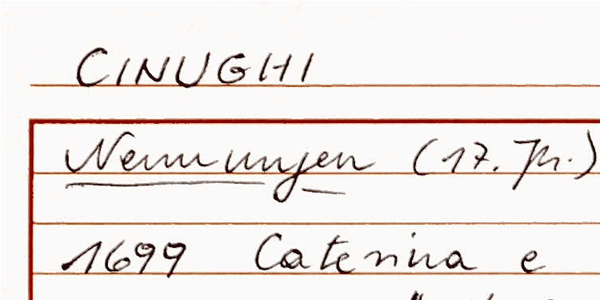 CINUGHI
Nennungen (17. Jh.)
1699 Caterina e